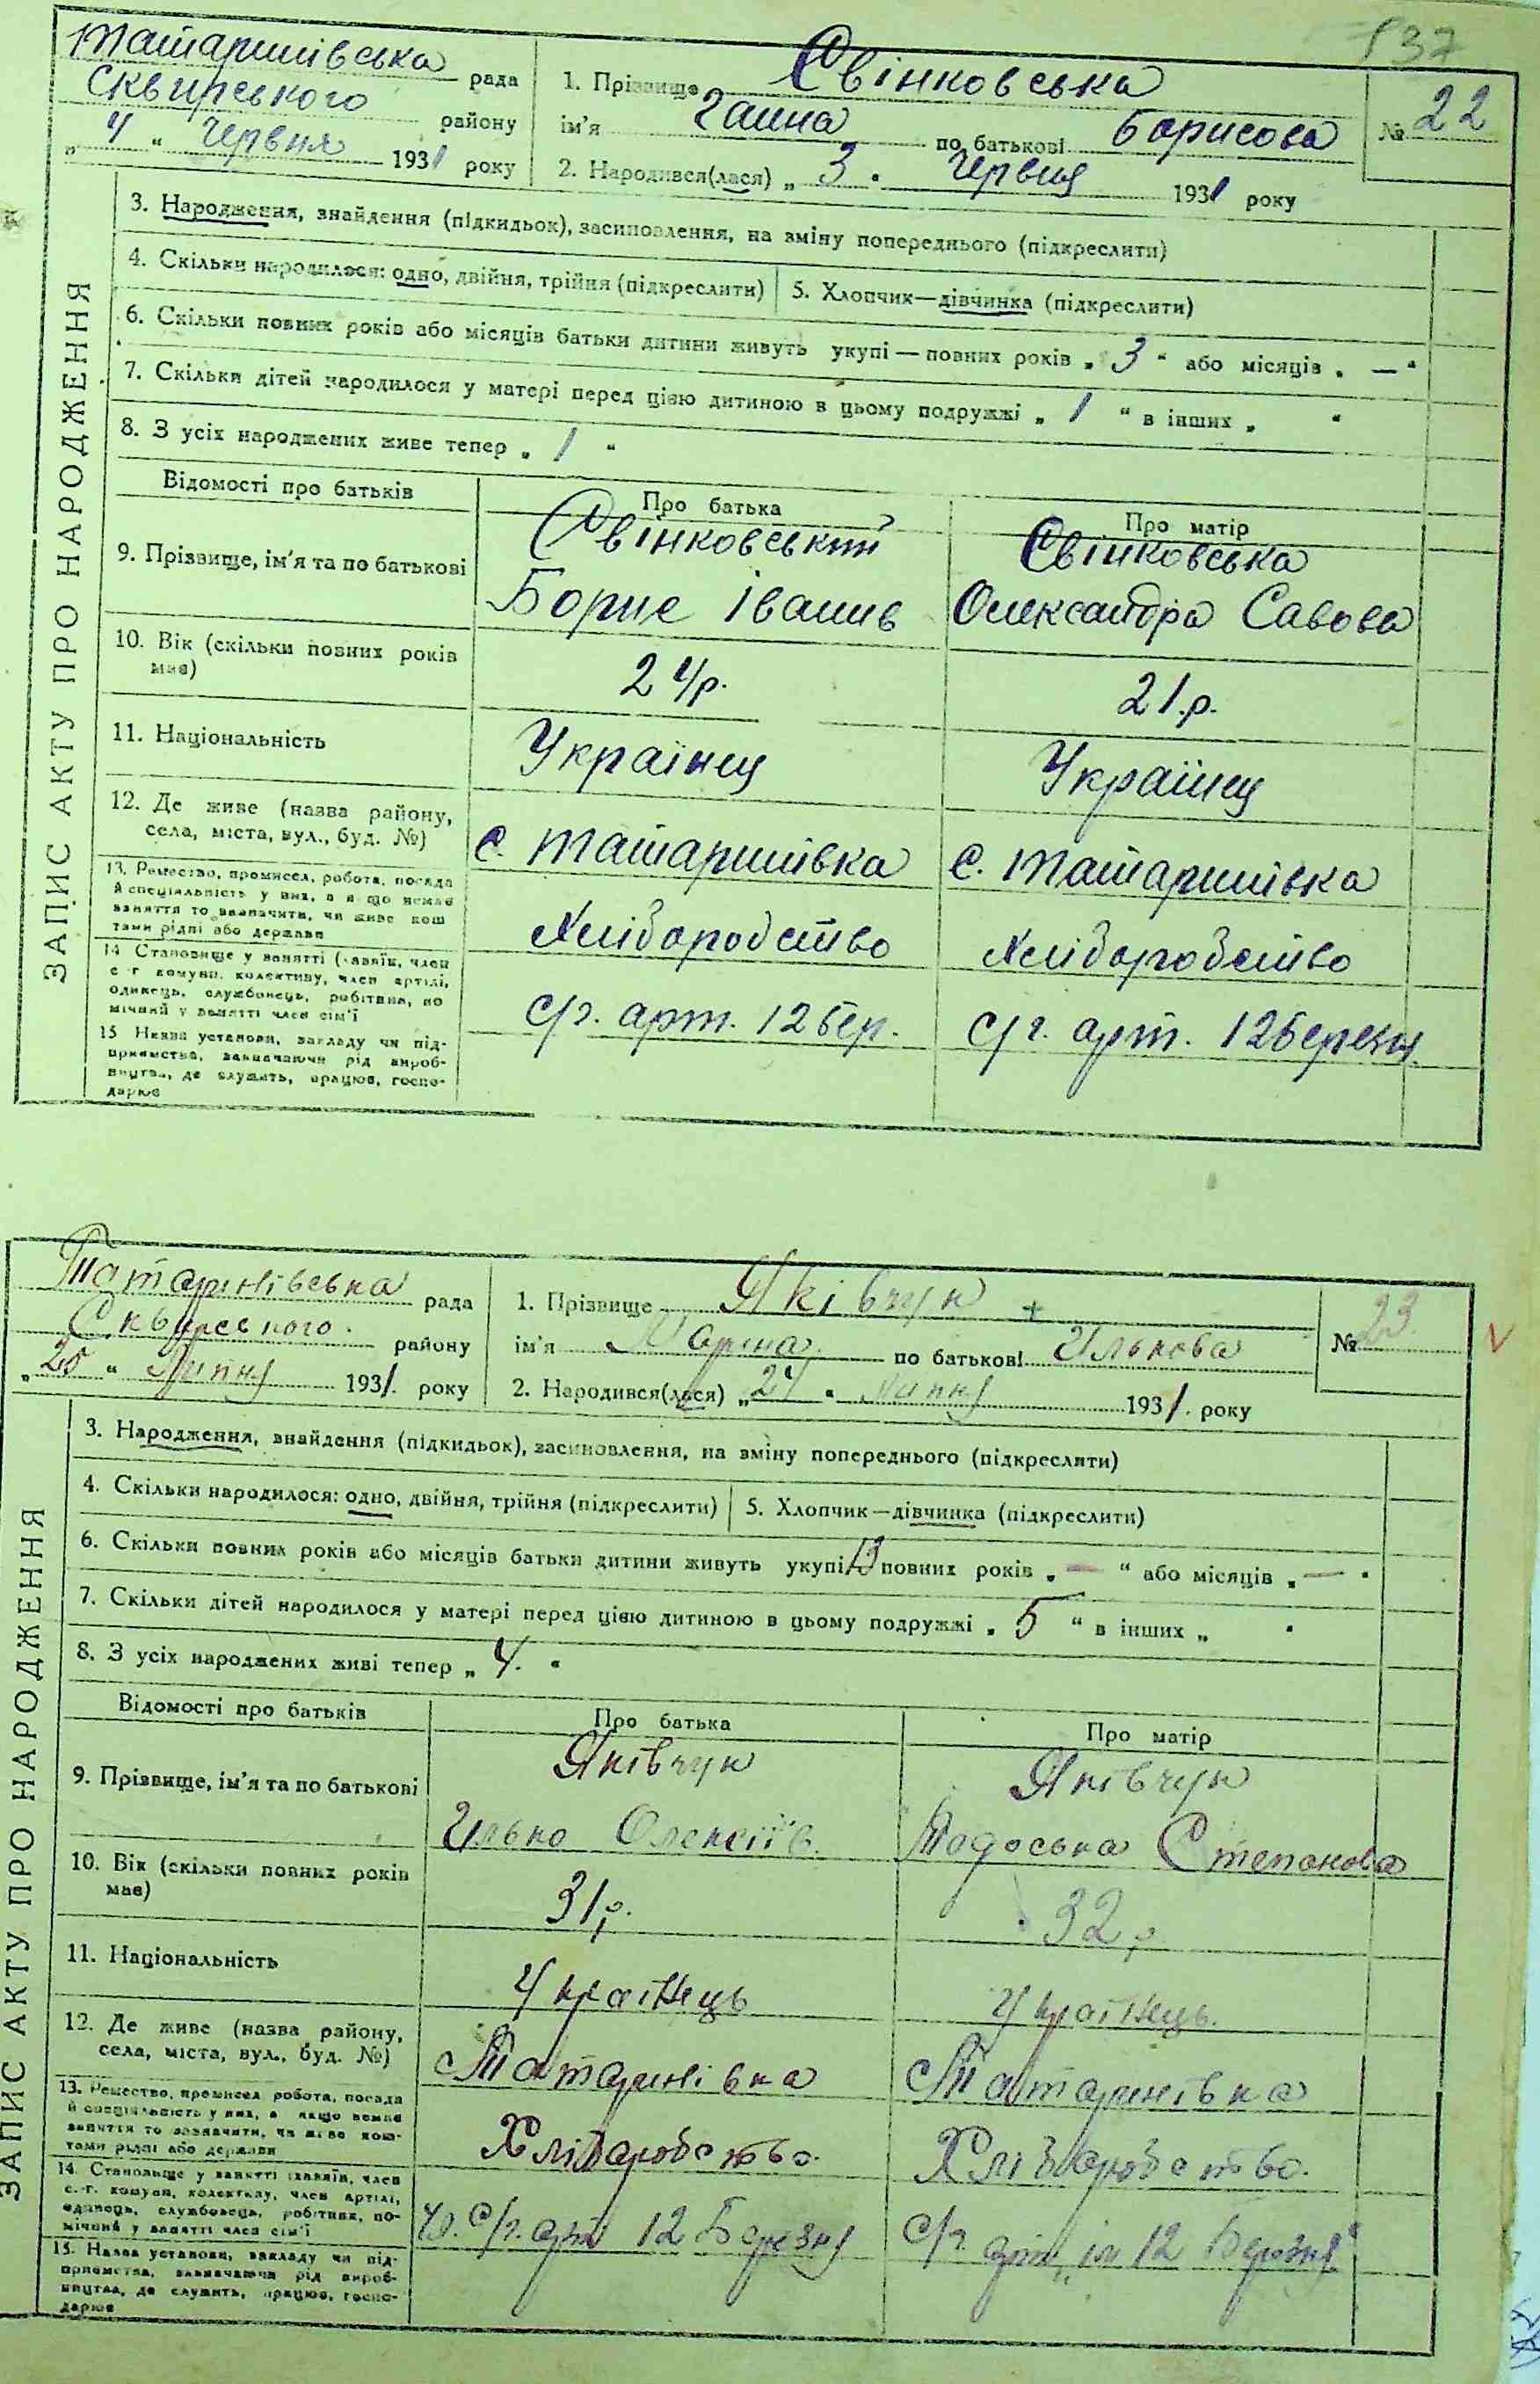 137
Татаринівська рада
Сквирського району
„ 4 “ Червня 1931 року
1. Прізвище Свінковська
ім'я Ганна по батькові Борисова
2. Народився(лася) „ 3 “ Червня 1931 року
№ 22
ЗАПИС АКТУ ПРО НАРОДЖЕННЯ
3. Народження, знайдення (підкидьок), засиновлення, на зміну попереднього (підкреслити)
4. Скільки народилося: одно, двійня, трійня (підкреслити) 5. Хлопчик—дівчинка (підкреслити)
6. Скільки повних років або місяців батьки дитини живуть укупі — повних років „ 3 “ або місяців „ — “
7. Скільки дітей народилося у матері перед цією дитиною в цьому подружжі „ 1 “ в інших „ “
8. З усіх народжених живе тепер „ 1 “
Відомості про батьків Про батька Про матір
9. Прізвище, ім'я та по батькові
Свінковський Свінковська
Борис Іванив Олександра Савова
10. Вік (скільки повних років має) 24р. 21.р.
11. Національність Українец Українец
12. Де живе (назва району, села, міста, вул., буд. №) с. Татаринівка с. Татаринівка
13. Ремество, промисел, робота, посада й спеціяльність у них, а якщо немає заняття то зазначити, чи живе коштами рідні або держави
Хліборобство Хліборобство
14. Становище у занятті (хазяїн, член с.-г. комуни, колективу, член артілі, одинець, службовець, робітник, помічний у занятті член сім'ї
с/г. арт. 12 бер. с/г. арт. 12 березн.
15. Назва установи, закладу чи підприємства, зазначаючи рід виробництва, де служить, працює, господарює
Татаринівська рада
Сквирського району
„ 25 “ Липня 1931. року
1. Прізвище Яківчук +
ім'я Марина по батькові Ількова
2. Народився(лася) „ 24 “ Липня 1931. року
№ 23
ЗАПИС АКТУ ПРО НАРОДЖЕННЯ
3. Народження, знайдення (підкидьок), засиновлення, на зміну попереднього (підкреслити)
4. Скільки народилося: одно, двійня, трійня (підкреслити) 5. Хлопчик—дівчинка (підкреслити)
6. Скільки повних років або місяців батьки дитини живуть укупі 13 повних років „ — “ або місяців „ — “
7. Скільки дітей народилося у матері перед цією дитиною в цьому подружжі „ 5 “ в інших „ “
8. З усіх народжених живі тепер „ 4. “
Відомості про батьків Про батька Про матір
9. Прізвище, ім'я та по батькові
Яківчук Яківчук
Ілько Олексіїв. Тодоська Степанова
10. Вік (скільки повних років має) 31р. 32р
11. Національність Українець Українець.
12. Де живе (назва району, села, міста, вул., буд. №) с Татаринівка с Татаринівка
13. Ремество, промисел робота, посада й спеціяльність у них, а якщо немає заняття то зазначити, чи живе коштами рідні або держави
Хліборобство. Хліборобство.
14. Становище у занятті хазяїн, член с.-г. комуни, колективу, член артілі, одинець, службовець, робітник, помічний у занятті член сім'ї
Ч. с/г. арт 12 Березня с/г. арт. ім 12 Березня
15. Назва установи, закладу чи підприємства, зазначаючи рід виробництва, де служить, працює, господарює